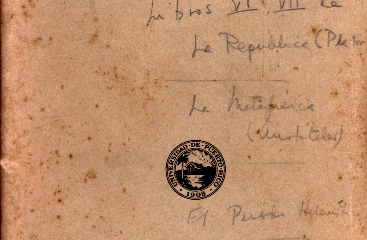 Libros VI, VII de
La República (Platón
La Metafísica
(Aristóteles)
UNIVERSIDAD·DE·PUERTO·RICO
1903
El Periodo Helenís